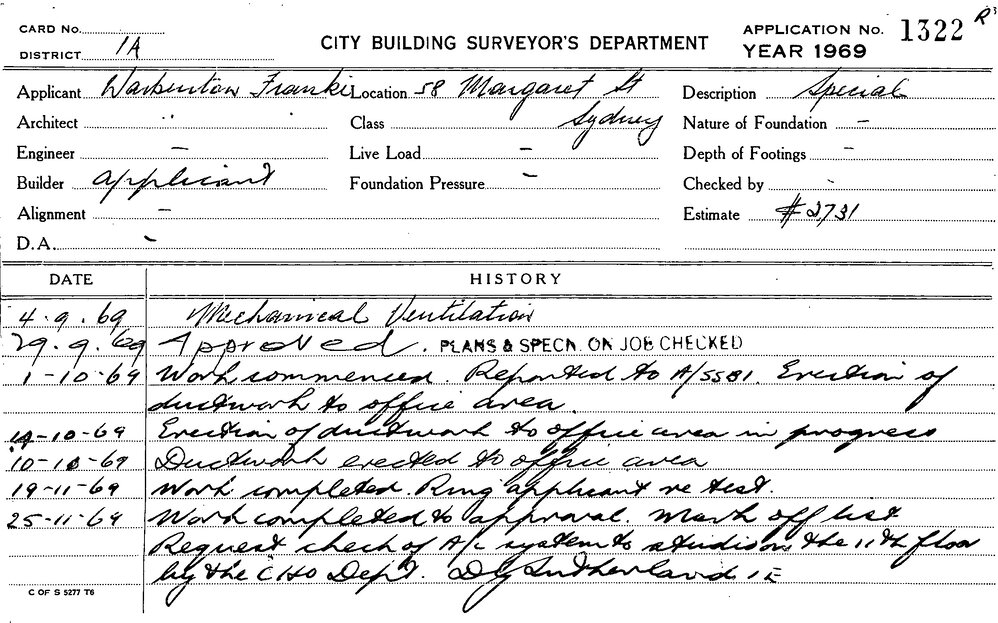 CARD No.
DISTRICT 1A
CITY BUILDING SURVEYOR'S DEPARTMENT
APPLICATION No. 1322 R
YEAR 1969
Applicant Warburton Franki Location 58 Margaret St Description Special
Architect " Class Sydney Nature of Foundation -
Engineer - Live Load - Depth of Footings -
Builder applicant Foundation Pressure - Checked by -
Alignment - Estimate $2731
D.A. -
DATE HISTORY
4.9.69 Mechanical Ventilation
29.9.69 Approved. PLANS & SPECN. ON JOB CHECKED
1-10-69 Work commenced. Reported to A/SSBI. Erection of
ductwork to office area.
-10-69 Erection of ductwork to office area in progress
Ductwork erected to office area
19-11-69 Work completed. Ring applicant re test.
25-11-69 Work completed to approval. Mark off list
Request check of A/c system to studios on the 11th floor
by the CHO Dept. Sutherland
C OF S 5277 T6